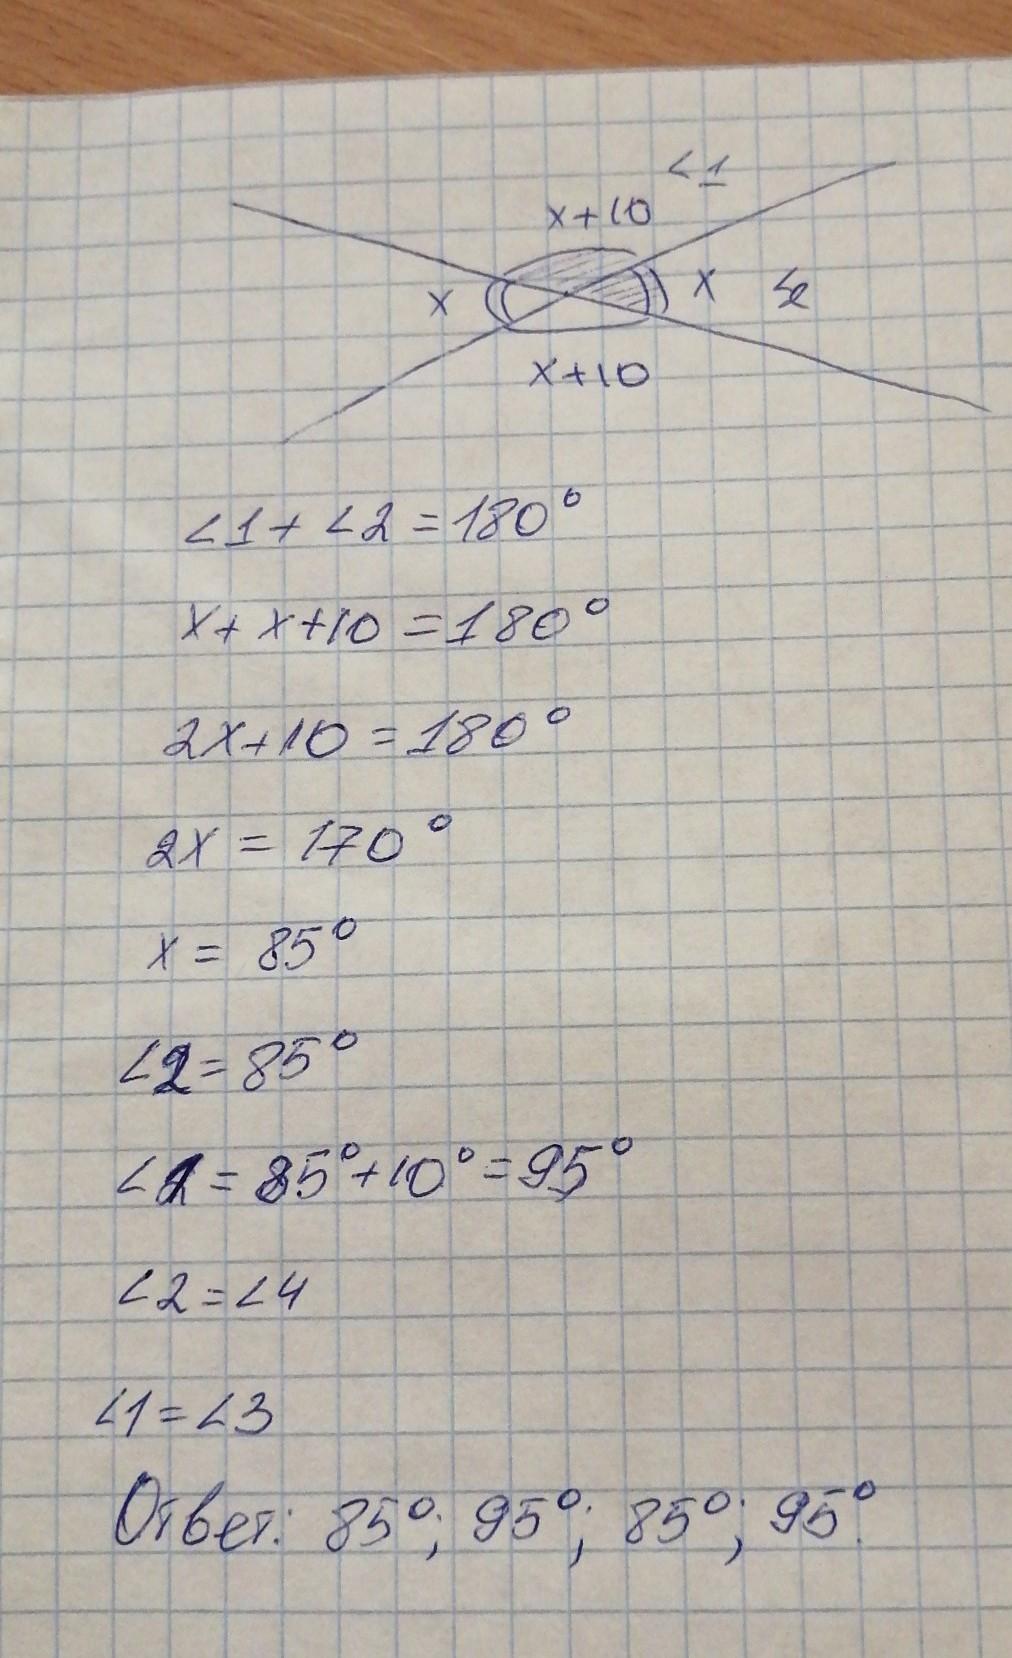 ∠1
x+10
x x ∠2
x+10
∠1 + ∠2 = 180°
x + x + 10 = 180°
2x + 10 = 180°
2x = 170°
x = 85°
∠2 = 85°
∠1 = 85° + 10° = 95°
∠2 = ∠4
∠1 = ∠3
Ответ: 85°; 95°; 85°; 95°.